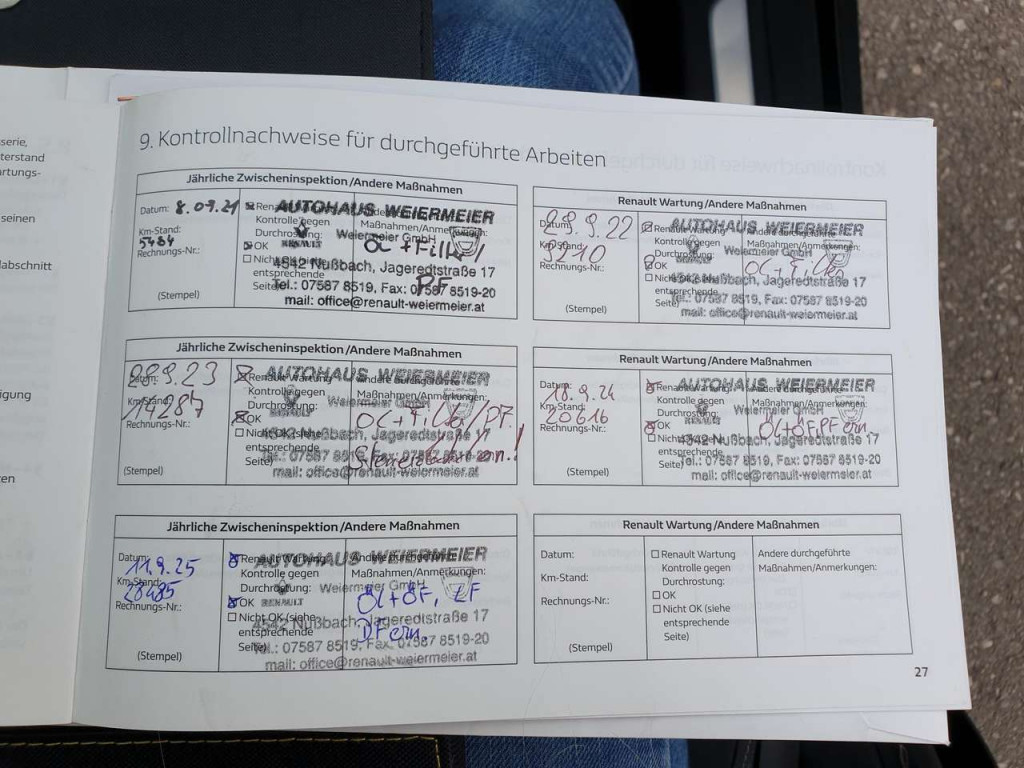 serie,
terstand
rtungs-
seinen
abschnitt
igung
ten
9. Kontrollnachweise für durchgeführte Arbeiten
Jährliche Zwischeninspektion/Andere Maßnahmen
Datum: 8.09.21
Km-Stand:
5484
Rechnungs-Nr.:
(Stempel)
Kontrolle gegen
Durchrostung:
OK
entsprechende
Seite)
Maßnahmen/Anmerkungen:
AUTOHAUS WEIERMEIER
Weiermeier GmbH
RENAULT
Öl + Filter/
PF
4542 Nußbach, Jageredtstraße 17
Tel.: 07587 8519, Fax: 07587 8519-20
mail: office@renault-weiermeier.at
Renault Wartung/Andere Maßnahmen
Datum: 29.9.22
Km-Stand:
9210
Rechnungs-Nr.:
(Stempel)
Kontrolle gegen
Durchrostung:
OK
entsprechende
Seite)
Maßnahmen/Anmerkungen:
AUTOHAUS WEIERMEIER
Weiermeier GmbH
4542 Nußbach, Jageredtstraße 17
Tel.: 07587 8519, Fax: 07587 8519-20
mail: office@renault-weiermeier.at
Jährliche Zwischeninspektion/Andere Maßnahmen
Datum: 28.9.23
Km-Stand:
14287
Rechnungs-Nr.:
(Stempel)
Renault Wartung
Kontrolle gegen
Durchrostung:
OK
Nicht OK (siehe
entsprechende
Seite)
Andere durchgeführte
Maßnahmen/Anmerkungen:
AUTOHAUS WEIERMEIER
Weiermeier GmbH
4542 Nußbach, Jageredtstraße 17
Tel.: 07587 8519, Fax: 07587 8519-20
mail: office@renault-weiermeier.at
Renault Wartung/Andere Maßnahmen
Datum: 18.9.24
Km-Stand:
20616
Rechnungs-Nr.:
(Stempel)
Kontrolle gegen
Durchrostung:
OK
entsprechende
Seite)
Maßnahmen/Anmerkungen:
AUTOHAUS WEIERMEIER
Weiermeier GmbH
4542 Nußbach, Jageredtstraße 17
Tel.: 07587 8519, Fax: 07587 8519-20
mail: office@renault-weiermeier.at
Jährliche Zwischeninspektion/Andere Maßnahmen
Datum: 11.9.25
Km-Stand:
Rechnungs-Nr.:
(Stempel)
Renault Wartung
Kontrolle gegen
Durchrostung:
OK
Nicht OK (siehe
entsprechende
Seite)
Andere durchgeführte
Maßnahmen/Anmerkungen:
AUTOHAUS WEIERMEIER
Weiermeier GmbH
RENAULT
Öl + ÖF, LF
4542 Nußbach, Jageredtstraße 17
Tel.: 07587 8519, Fax: 07587 8519-20
mail: office@renault-weiermeier.at
Renault Wartung/Andere Maßnahmen
Datum:
Km-Stand:
Rechnungs-Nr.:
(Stempel)
Renault Wartung
Kontrolle gegen
Durchrostung:
OK
Nicht OK (siehe
entsprechende
Seite)
Andere durchgeführte
Maßnahmen/Anmerkungen:
27